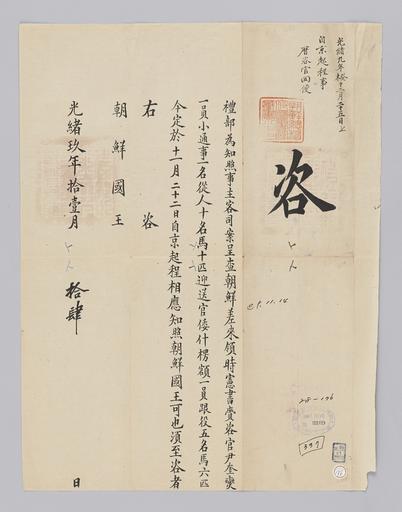 光緒九年癸十二月十五日上
自京起程事
曆咨官回便
咨
禮部為知照事主客司案呈查朝鮮差來領時憲書賫咨官尹奎燮
一員小通事一名從人十名馬十匹迎送官倭什楞額一員跟役五名馬六匹
今定於十一月二十二日自京起程相應知照朝鮮國王可也須至咨者
右咨
朝鮮國王
光緒玖年拾壹月拾肆日
28-196
337